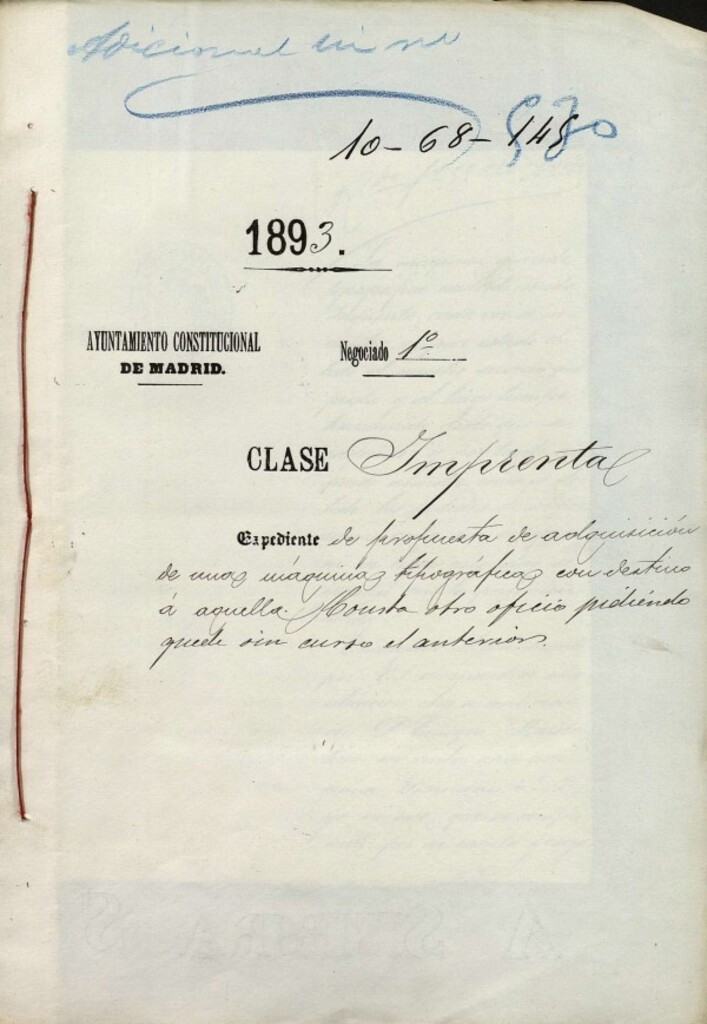 Adicional
10-68-145
1893.
AYUNTAMIENTO CONSTITUCIONAL
DE MADRID.
Negociado 1º
CLASE Imprenta
Expediente de propuesta de adquisición
de una máquina tipográfica con destino
á aquella. Consta otro oficio pidiéndo
quede sin curso el anterior.